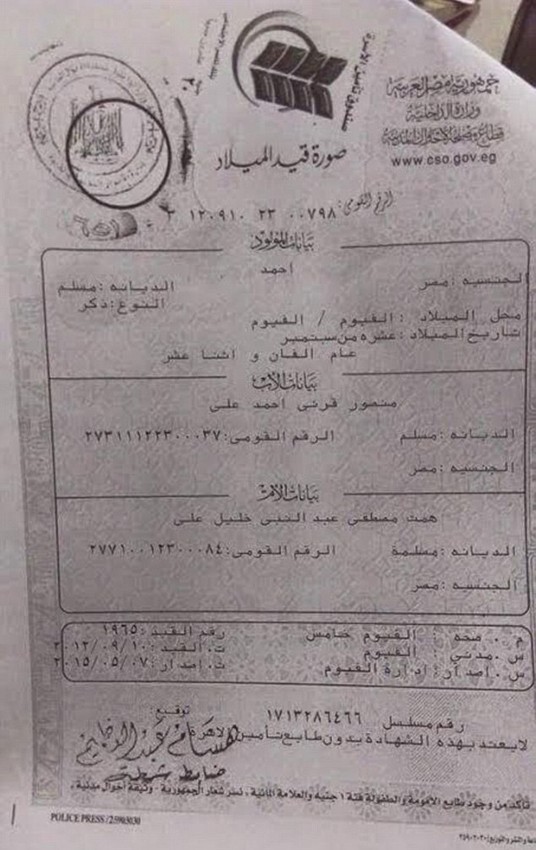 صندوق تأمين الأسرة
جمهورية مصر العربية
وزارة الداخلية
قطاع مصلحة الأحوال المدنية
www.cso.gov.eg
صورة قيد الميلاد
الرقم القومى: ٣ ١٢٠٩١٠ ٢٣ ٠٠٧٩٨
بيانات المولود
احمد
الجنسيه :مصر
الديانه :مسلم
النوع :ذكر
محل الميلاد : الفيوم / الفيوم
تاريخ الميلاد : عشره من سبتمبر
عام الفان و اثنا عشر
بيانات الأب
منصور قرنى احمد على
الديانه :مسلم الرقم القومى:٢٧٣١١١٢٢٣٠٠٠٣٧
الجنسيه :مصر
بيانات الأم
همت مصطفى عبد النبى خليل على
الديانه :مسلمة الرقم القومى:٢٧٧١٠٠١٢٣٠٠٠٨٤
الجنسيه :مصر
م . صحه : الفيوم خامس رقم القيد :١٩٦٥
س .مدني : الفيوم ت.القيد :٢٠١٢/٠٩/١٠
س .اصدار : ادارة الفيوم ت.اصدار :٢٠١٥/٠٥/٠٧
رقم مسلسل ١٧١٣٢٨٦٤٦٦
توقيع:
لايعتد بهذه الشهادة بدون طابع تأمين الاسرة
ضابط شرطة
تأكد من وجود طابع الأمومة والطفولة فئة ١ جنيه والعلامة المائية ، نسر شعار الجمهورية - وثيقة أحوال مدنية .
POLICE PRESS /25903030